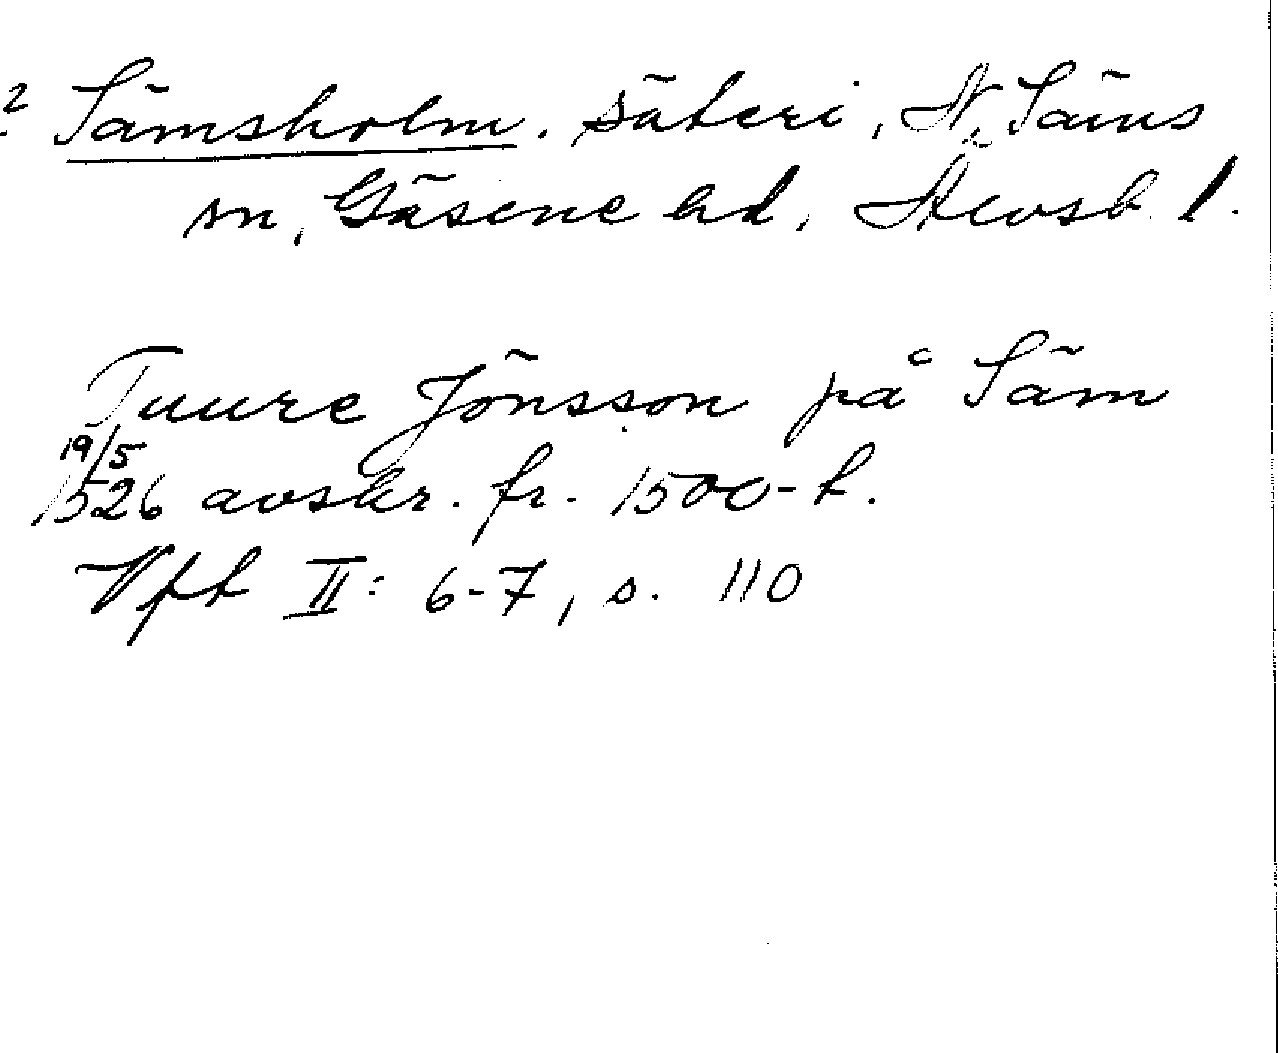 ? Sämsholm. säteri, N. Säms
sn, Gäsene hd, Älvsb. l.
Tuure Jönsson på Säm
19/5
1526 avskr. fr. 1500-t.
Vft II: 6-7, s. 110